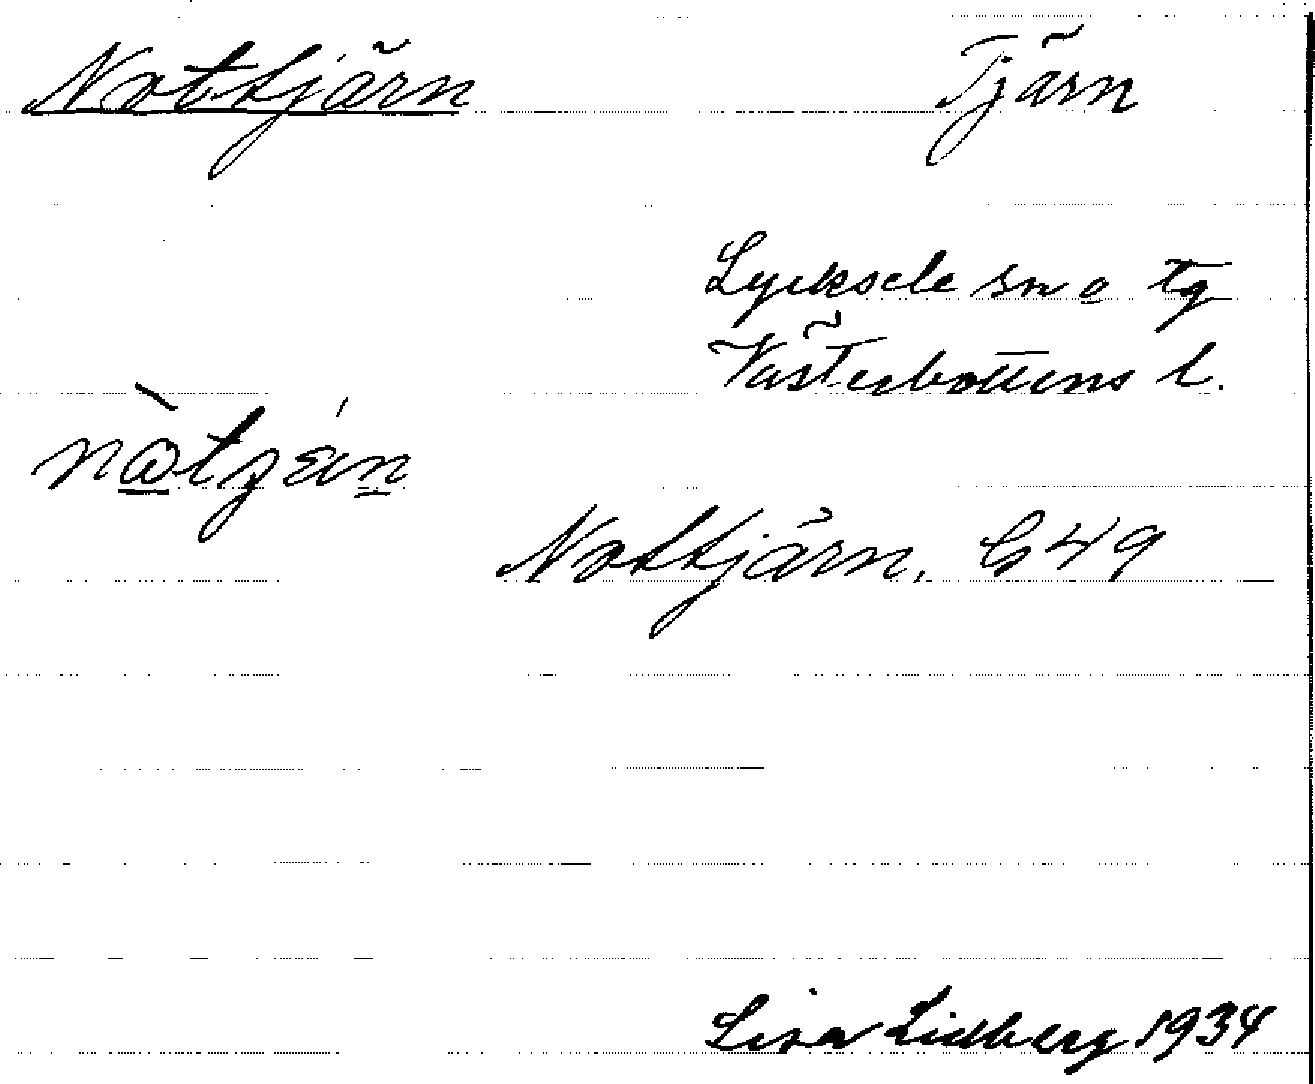 Nottjärn Tjärn
Lycksele sn o tg
Västerbottens l.
Nottjärn. G49
Lisa Lidberg 1934